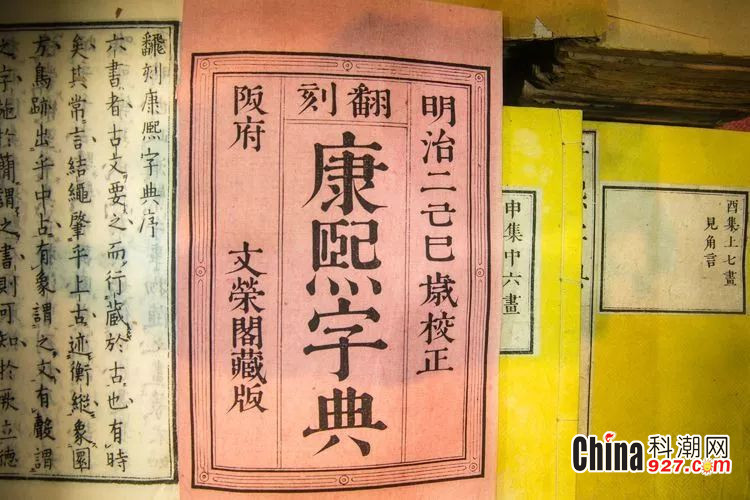 酉集上七畫
見角言
申集中六畫
明治二己巳歳校正
翻刻
康熙字典
阪府 文榮閣藏版
翻刻康熙字典序
六書者古文要之而行蔵於古也有時
矣其常言結繩肇乎上古迹衡縱象圜
方鳥跡出乎中古有象謂之文有聲謂
之字施於簡謂之書則可知於厥立德
China科潮网
927.com